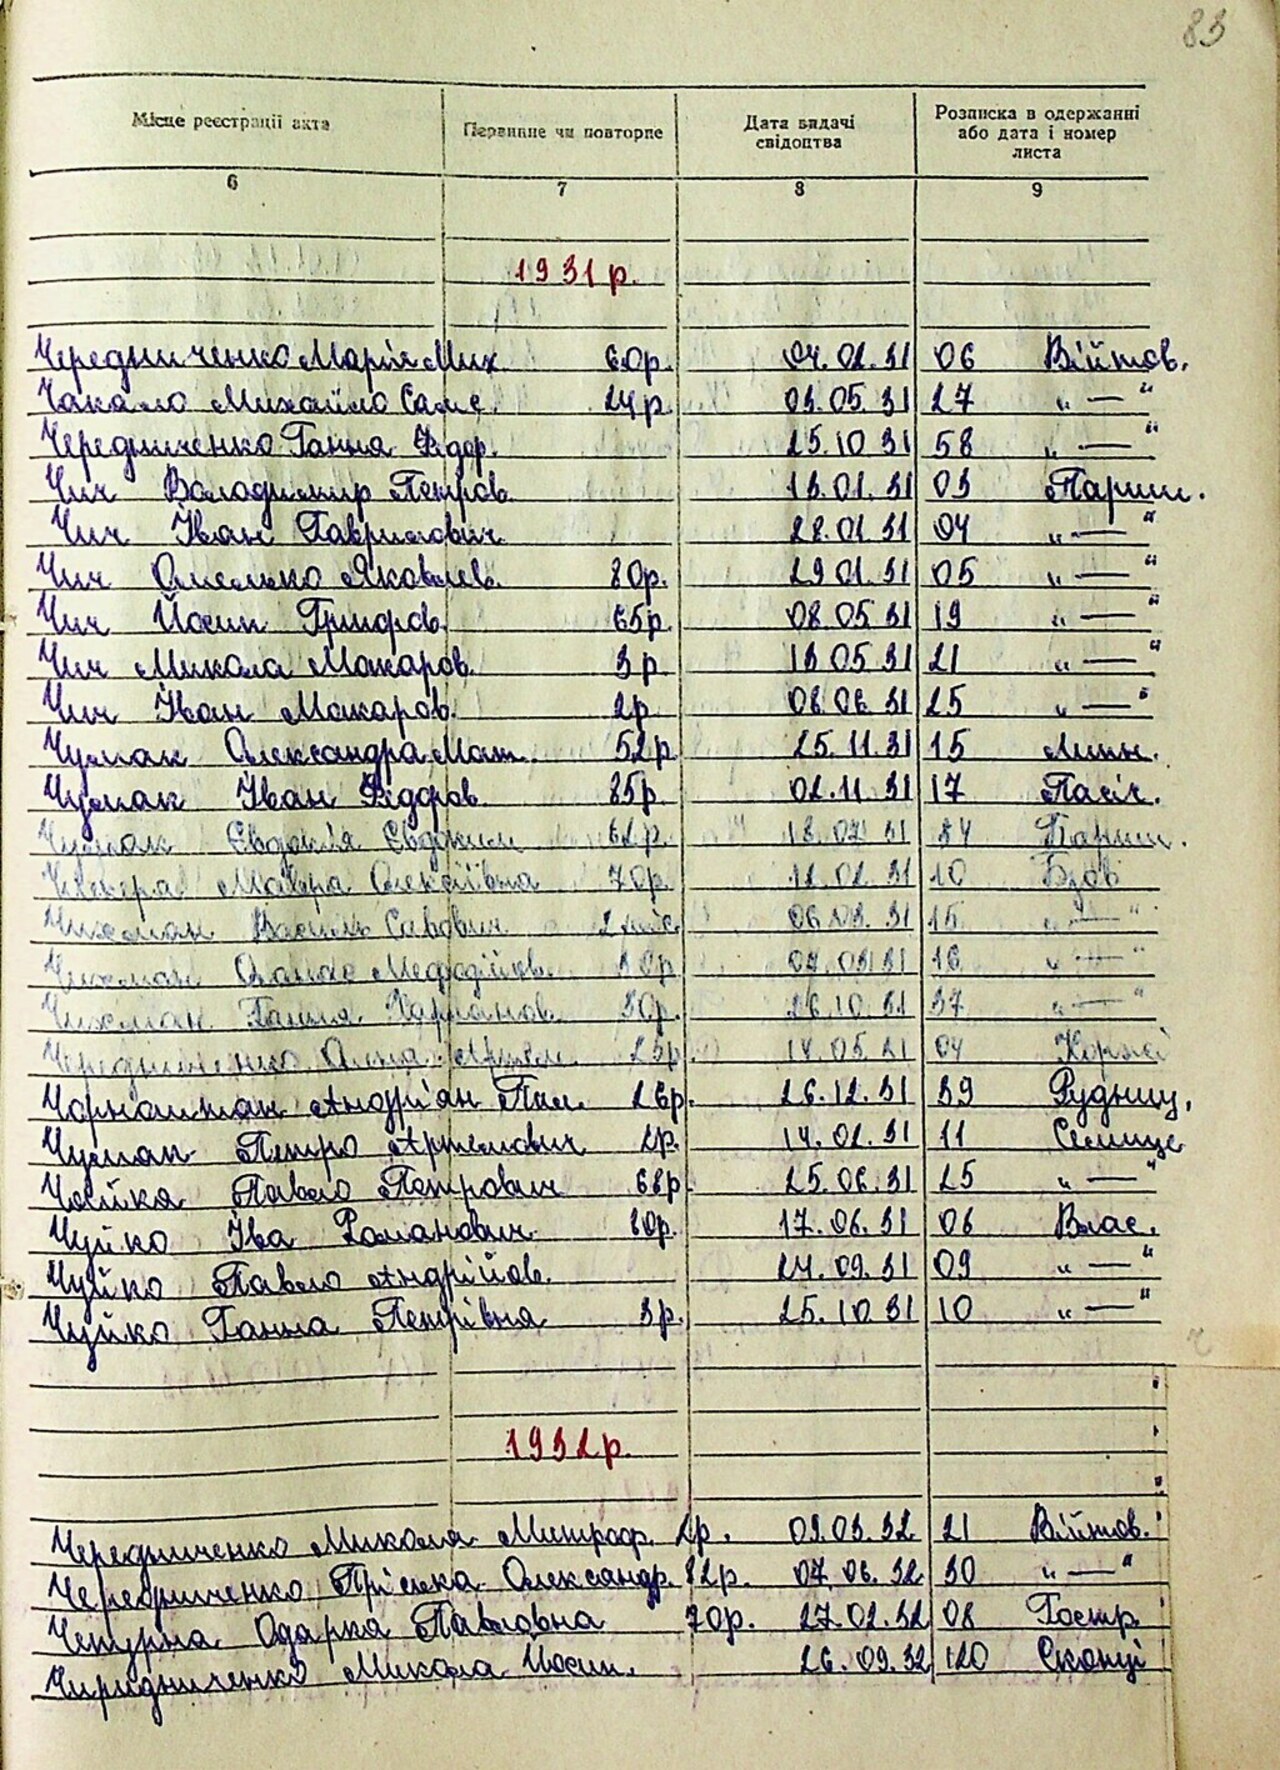 83
Місце реєстрації акта Первинне чи повторне Дата видачі свідоцтва Розписка в одержанні або дата і номер листа
6 7 8 9
1931 р.
Чередниченко Марія Мих. 60р. 04.02.31 06 Війтов.
Чакало Михайло Самс. 24р. 03.05.31 27 „—“
Чередниченко Ганна Федор. 25.10.31 58 „—“
Чич Володимир Петров. 13.01.31 03 Париш.
Чич Іван Гаврилович 28.01.31 04 „—“
Чич Омелько Яковлев. 80р. 29.01.31 05 „—“
Чич Йосип Григоров. 65р. 08.05.31 19 „—“
Чич Микола Макаров. 3р. 13.05.31 21 „—“
Чич Іван Макаров. 2р. 08.06.31 25 „—“
Чумак Олександра Мат. 52р. 25.11.31 15 Лихн.
Чумак Іван Федоров. 85р. 02.11.31 17 Пасіч.
Чумак Євдокія Євдоким 62р. 18.07.31 34 Париш.
Мавра Олексіївна 70р. 12.02.31 10 Бзов
Чихман Василь Савович 2 міс. 06.03.31 15 „—“
Чихман Опанас Мефодійов. 07.03.31 16 „—“
Чихман Ганна Харланов. 30р. 26.10.31 37 „—“
Чередниченко Анна Артем. 25р. 14.05.31 04
Чорноштан Андріян Пил. 26р. 26.12.31 39 Рудниц.
Чумак Петро Артемович 2р. 14.02.31 11 Селище
Чайка Павло Петрович 68р. 25.06.31 25 „—“
Чуйко Іва Романович 80р. 17.06.31 06 Влас.
Чуйко Павло Андрійов. 24.09.31 09 „—“
Чуйко Ганна Петрівна 3р. 25.10.31 10 „—“
1932 р.
Чередниченко Микола Митроф. 2р. 03.03.32 21 Війтов.
Чередниченко Пріська Олександр. 82р. 07.06.32 30 „—“
Чепурна Одарка Павловна 70р. 27.02.32 08 Гостр.
Чиридниченко Микола Йосип. 26.09.32 120 Скопці